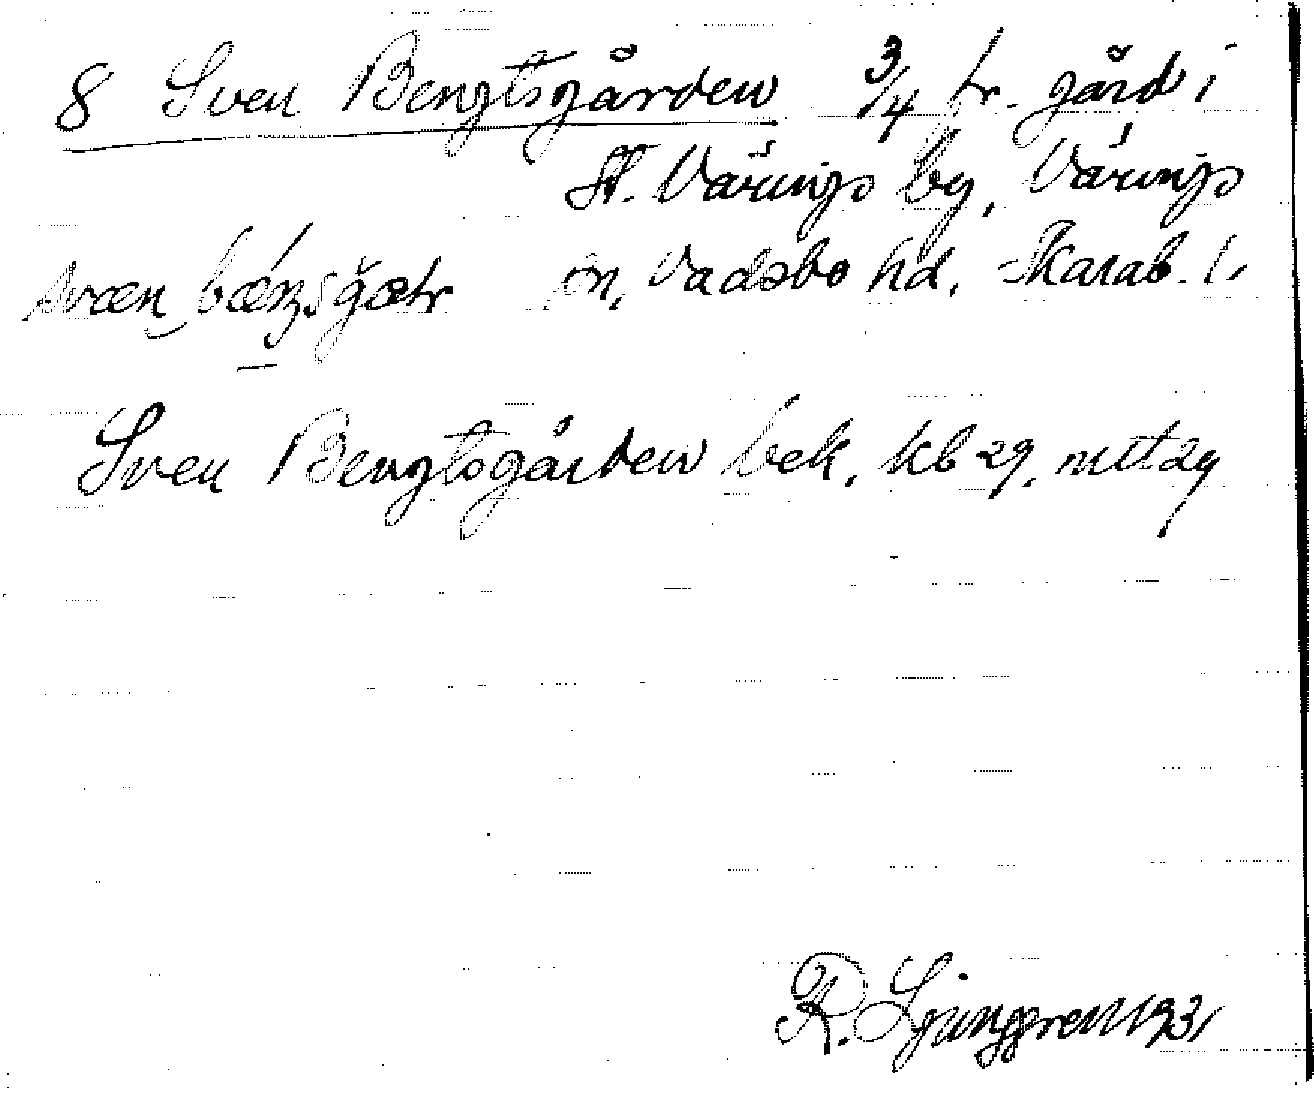 8 Sven Bengtsgården 3/4 hr. gård i
St. Värings by, Värings
sn, Vadsbo hd, Skarab. l.
Sven Bengtsgården bek. kb 29, mtl 29
R. Ljunggren 1931